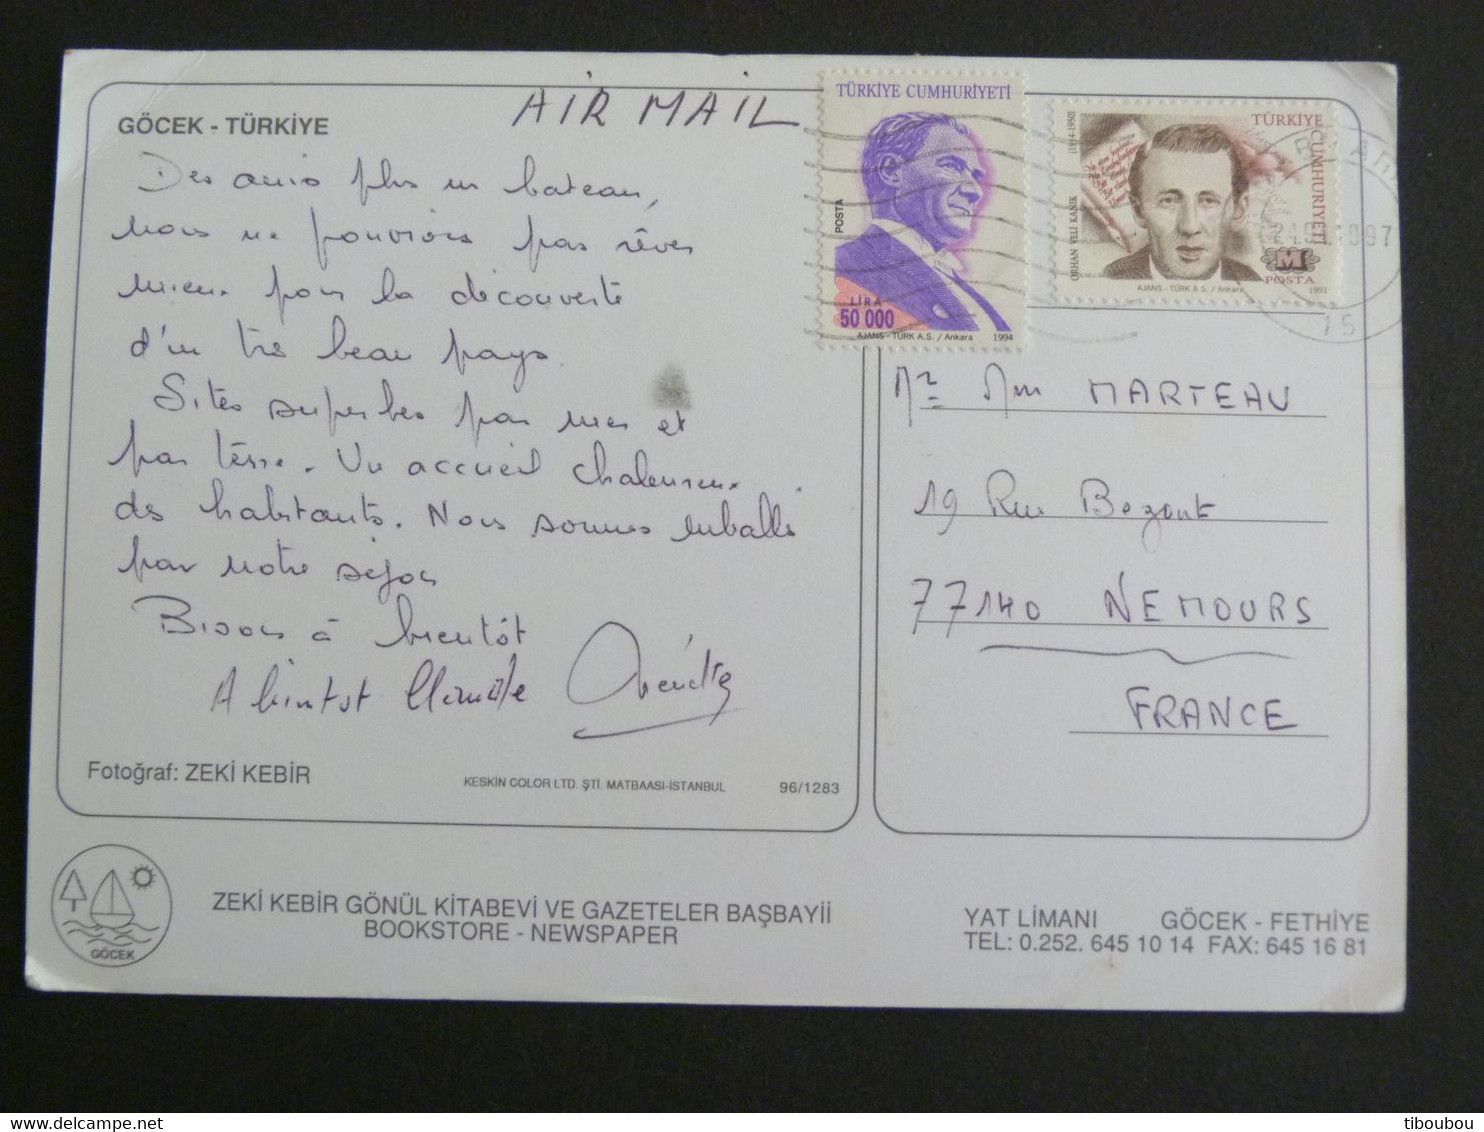 GÖCEK - TÜRKİYE
AIR MAIL
Des amis plus un bateau,
nous ne pouvions pas rêver
mieux pour la découverte
d'un très beau pays.
Sites superbes par mer et
par terre. Un accueil chaleureux
des habitants. Nous sommes emballés
par notre séjour
Bisous à bientôt
A bientot
Fotoğraf: ZEKİ KEBİR
KESKİN COLOR LTD. ŞTİ. MATBAASI-İSTANBUL
96/1283
TÜRKİYE CUMHURİYETİ
POSTA
LİRA
50 000
AJANS - TÜRK A.Ş. / Ankara 1994
TÜRKİYE CUMHURİYETİ
ORHAN VELİ KANIK (1914-1950)
M
POSTA
AJANS - TÜRK A.Ş. / Ankara 1993
1997
15
MARTEAU
19 Rue Bezout
77140 NEMOURS
FRANCE
GÖCEK
ZEKİ KEBİR GÖNÜL KİTABEVİ VE GAZETELER BAŞBAYİİ
BOOKSTORE - NEWSPAPER
YAT LİMANI GÖCEK - FETHİYE
TEL: 0.252. 645 10 14 FAX: 645 16 81
tiboubou